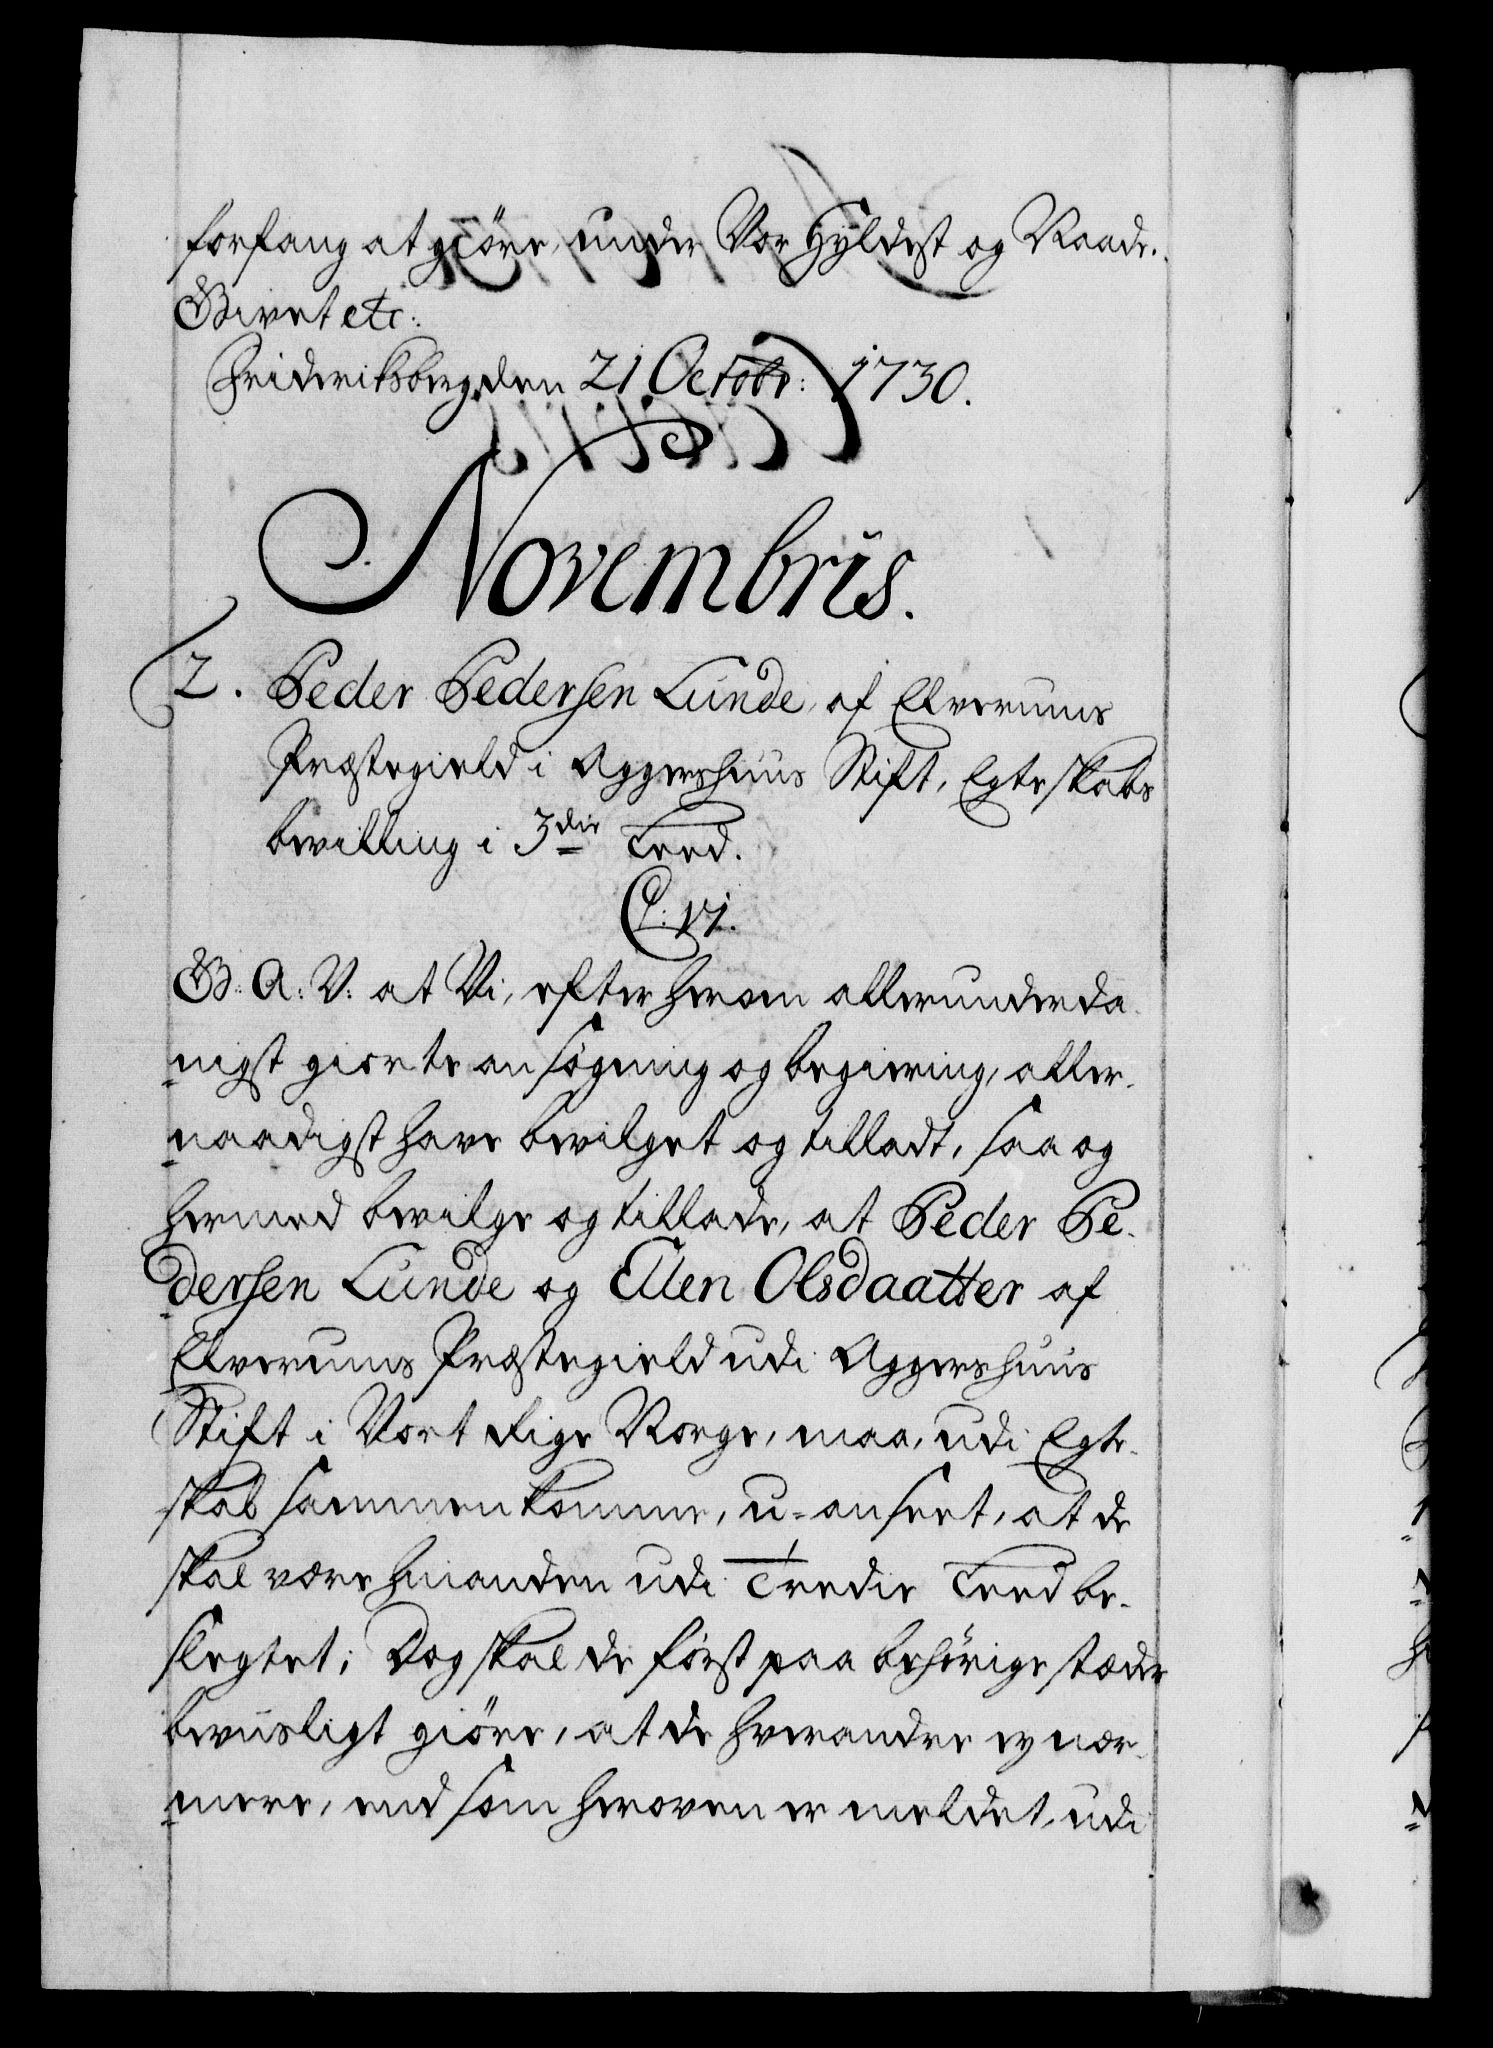 forfang at giöre, under Vor Hyldest og Naade.
Givet etc:
Friderichsberg den 21 Octobr: 1730.
Novembris.
2. Peder Pedersen Lunde, af Elverums
Præstegield i Aggershuus Stift, Egteskabs
bevilling i 3die Leed.
C: VI.
G: A: V: at Vi, efter herom allerunderda
nigst giorte ansøgning og begiering, aller-
naadigst have bevilget og tilladt, saa og
hermed bevilge og tillade, at Peder Pe-
dersen Lunde og Ellen Olsdaatter af
Elverums Præstegield udi Aggershuus
Stift i Vort Rige Norge, maa, udi Egte-
skab sammenkomme, u-anseet, at de
skal være hinanden udi Tredie Leed be-
slegtet; Dog skal de først paa behörige stæder
beviisligt giöre, at de hverandre ey nær-
mere, end som heroven er meldet, udi